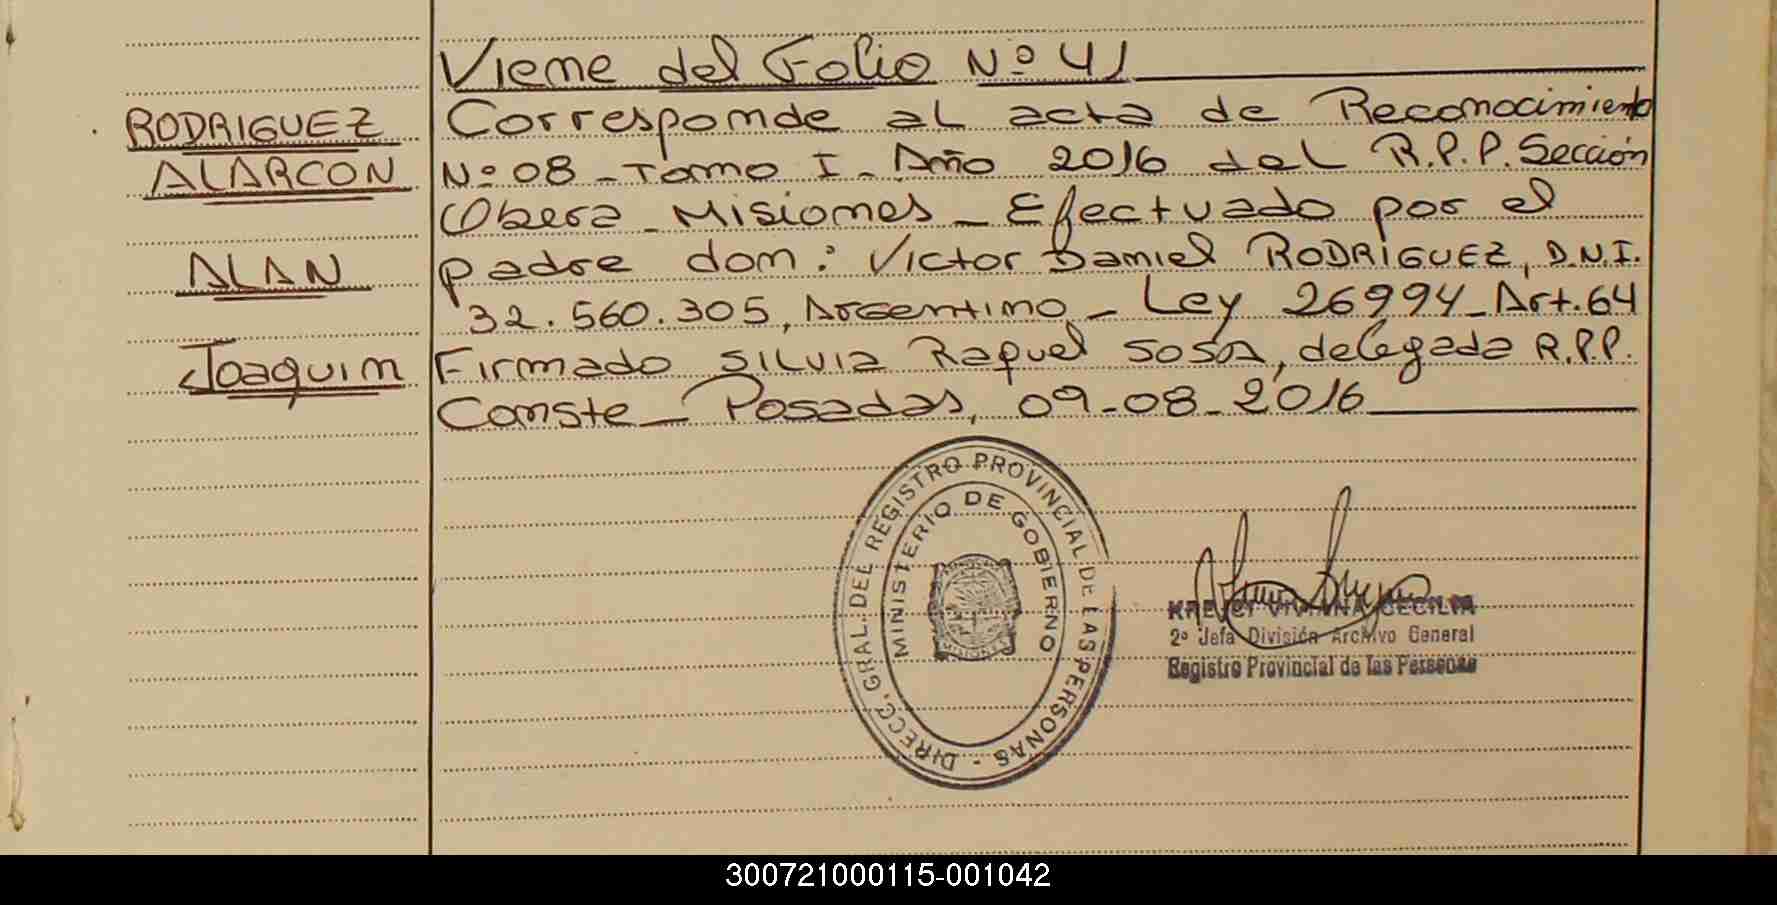 Viene del Folio Nº 41
RODRIGUEZ
ALARCON
ALAN
Joaquim
Corresponde al acta de Reconocimiento
Nº 08 - Tomo I - Año 2016 del R.P.P. Sección
Obera - Misiones - Efectuado por el
padre don: Victor Daniel RODRIGUEZ, D.N.I.
32.560.305, Argentino - Ley 26994 - Art. 64
Firmado SILVIA Raquel SOSA, delegada R.P.P.
Conste - Posadas, 09-08-2016
DIRECC. GRAL. DEL REGISTRO PROVINCIAL DE LAS PERSONAS -
MINISTERIO DE GOBIERNO
MISIONES
KREJCI VIVIANA CECILIA
2º Jefa División Archivo General
Registro Provincial de las Personas
300721000115-001042